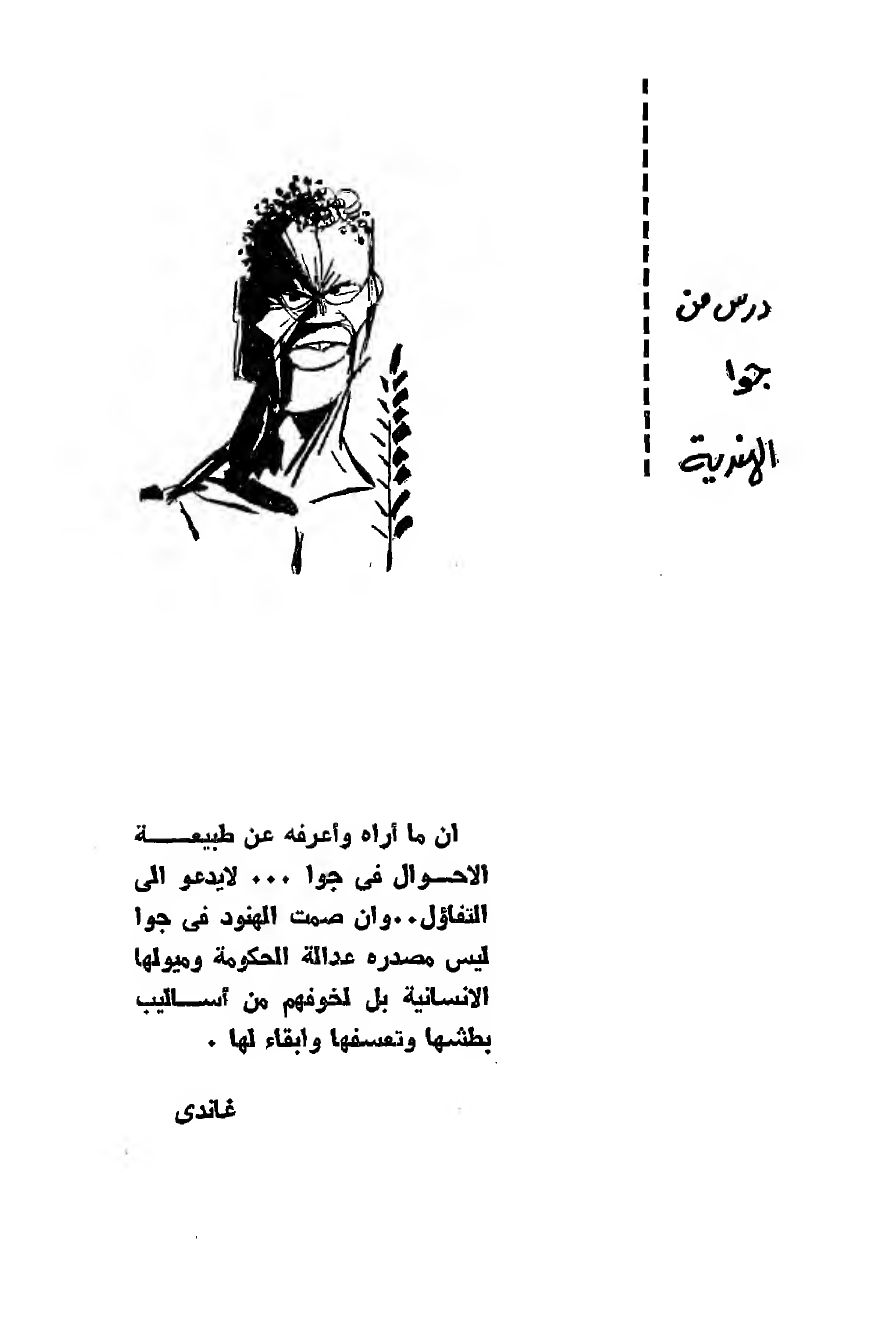 درس من
جوا
الهندية
ان ما أراه وأعرفه عن طبيعــــة
الاحــوال فى جوا ٠٠٠ لايدعو الى
التفاؤل٠٠وان صمت الهنود فى جوا
ليس مصدره عدالة الحكومة وميولها
الانسانية بل لخوفهم من أســـاليب
بطشها وتعسفها وابقاء لها ٠
غاندى